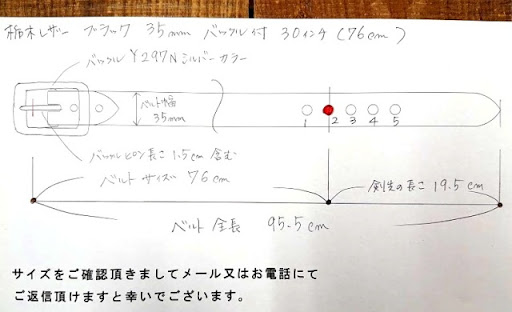 栃木レザー ブラック 35mm バックル付 30インチ(76cm)
バックル Y297N シルバーカラー
ベルト幅
35mm
1 2 3 4 5
バックルピン長さ 1.5cm 含む
ベルトサイズ 76cm
剣先の長さ 19.5cm
ベルト全長 95.5cm
サイズをご確認頂きましてメール又はお電話にて
ご返信頂けますと幸いでございます。